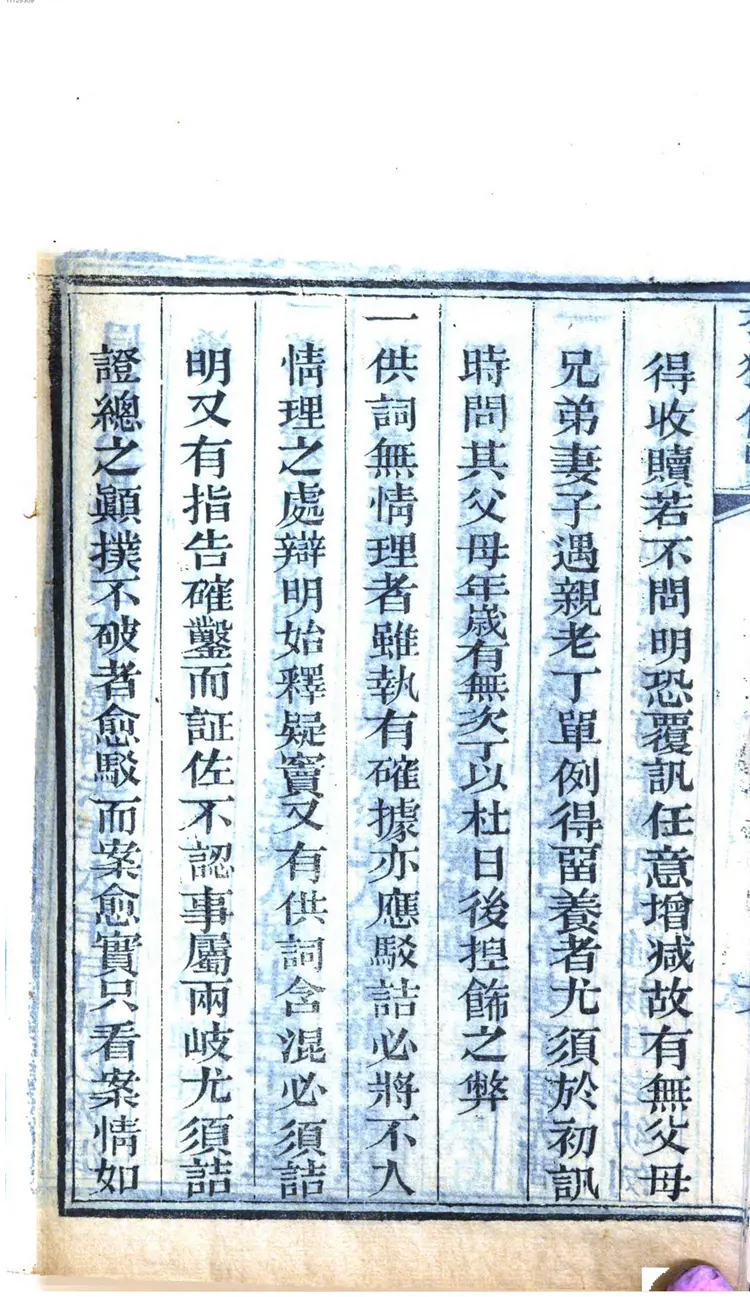 得收贖若不問明恐覆訊任意增减故有無父母
兄弟妻子遇親老丁單例得畱養者尤須於初訊
時問其父母年歲有無次丁以杜日後揑飾之弊
一供詞無情理者雖執有確據亦應駁詰必將不入
情理之處辯明始釋疑竇又有供詞含混必須詰
明又有指告確鑿而証佐不認事屬兩岐尤須詰
證總之顚撲不破者愈駁而案愈實只看案情如